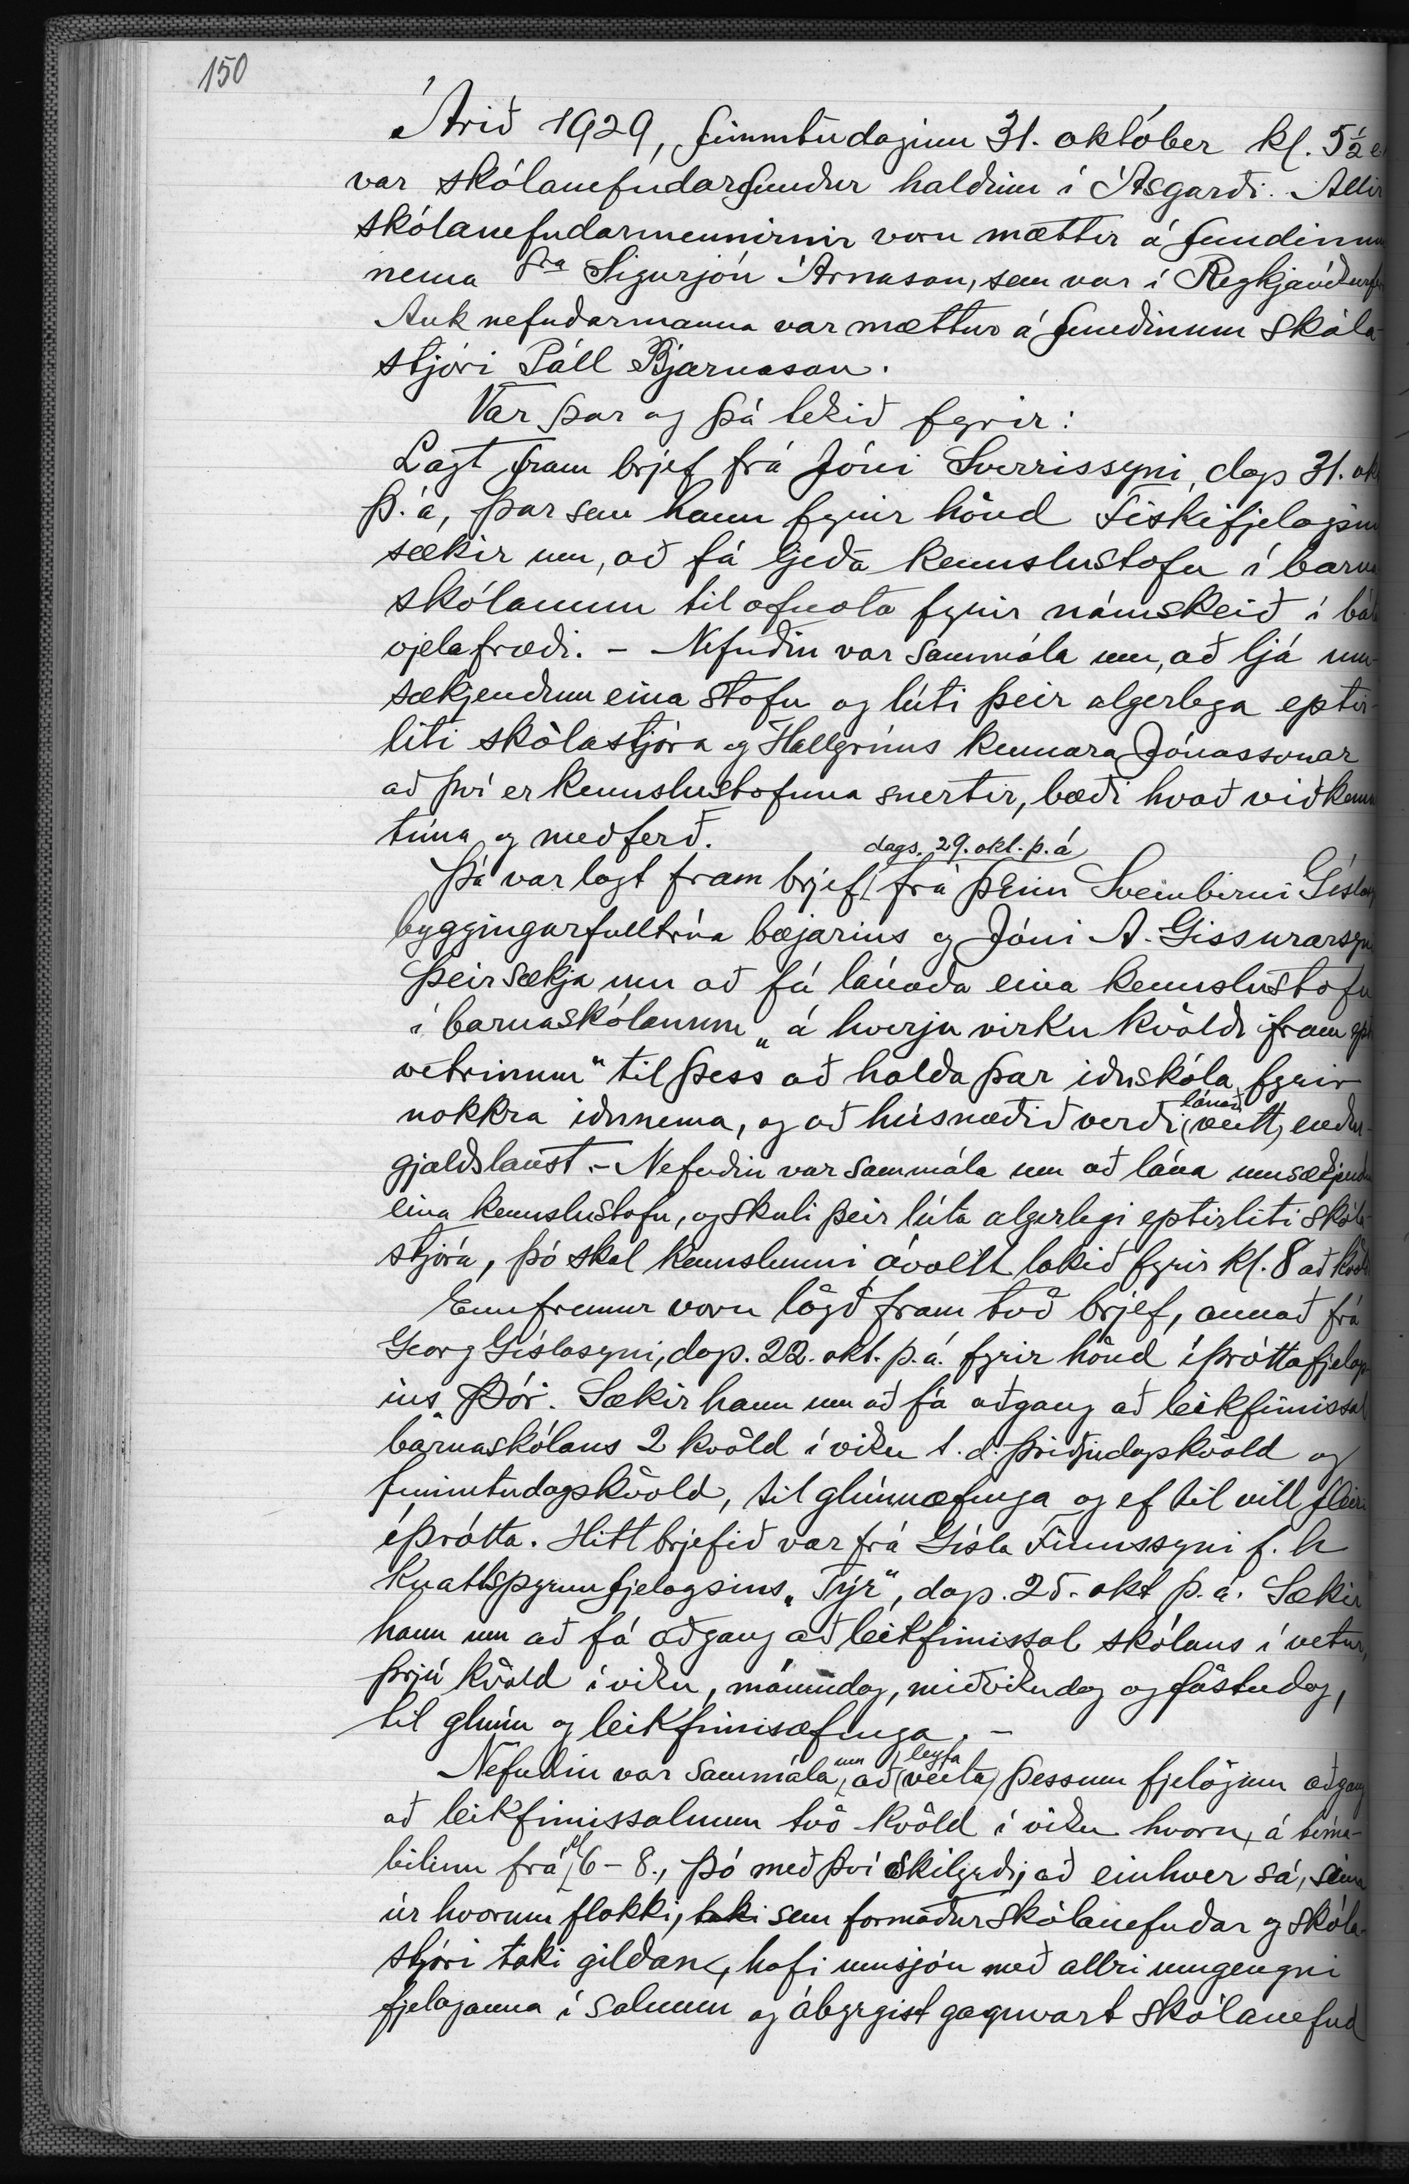 150
Árið 1929, fimmtudaginn 31. október kl. 5 1/2 e.
var skólanefndarfundur haldinn í Ásgarði. Allir
skólanefndarmennirnir voru mættir á fundinum
nema sra Sigurjón Árnason, sem var í
Auk nefndarmanna var mættur á fundinum skóla-
stjóri Páll Bjarnason.
Var þar og þá tekið fyrir:
Lagt fram brjef frá Jóni Sverrissyni, dags 31. okt
þ. á, þar sem hann fyrir hönd Fiskifjelagsins
sækir um, að fá ljeða kennslustofu í barna
skólanum til afnota fyrir námskeið í báta
vjelafræði. - Nefndin var sammála um, að ljá um-
sækjendum eina stofu og lúti þeir algerlega eptir-
liti skólastjóra og Hallgríms kennara Jónassonar
að því er kennslustofuna snertir, bæði hvað viðkemur
tíma og meðferð.
dags. 29. okt. þ. á
Þá var lagt fram brjef frá þeim Sveinbirni Gíslasyni
byggingarfulltrúa bæjarins og Jóni A. Gissurarsyni
Þeir sækja um að fá lánaða eina kennslustofu
í barnaskólanum „á hverju virku kvöldi fram ept
vetrinum" til þess að halda þar iðnskóla fyrir
nokkra iðnnema, og að húsnæðið verði (veitt) lánað endur-
gjaldslaust. - Nefndin var sammála um að lána umsækjendum
eina kennslustofu, og skuli þeir lúta algerlegi eptirliti skóla-
stjóra, þó skal kennslunni ávallt lokið fyrir kl. 8 að kvöldi
Ennfremur voru lögð fram tvö brjef, annað frá
Georg Gíslasyni, dags. 22. okt. þ. á. fyrir hönd íþróttafjelags-
ins „Þór. Sækir hann um að fá aðgang að leikfimissal
barnaskólans 2 kvöld í viku t. d. þriðjudagskvöld og
fimmtudagskvöld, til glímuæfinga og ef til vill fleiri
íþrótta. Hitt brjefið var frá Gísla Finnssyni f. h
Knattspyrnufjelagsins „Týr", dags. 25. okt þ. á. Sækir
hann um að fá aðgang að leikfimissal skólans í vetur,
þrjú kvöld í viku, mánudag, miðvikudag og föstudag,
til glímu og leikfimisæfinga. -
Nefndin var sammála um að (veita) leyfa þessum fjelögum aðgang
að leikfimissalnum tvö kvöld í viku hvoru, á tíma-
bilinu frá kl 6 - 8., þó með því skilyrði, að einhver sá,
úr hvorum flokki, taki sem formaður skólanefndar og skóla-
stjóri taki gildan, hafi umsjón með allri umgengni
fjelaganna í salnum og ábyrgist gagnvart skólanefnd